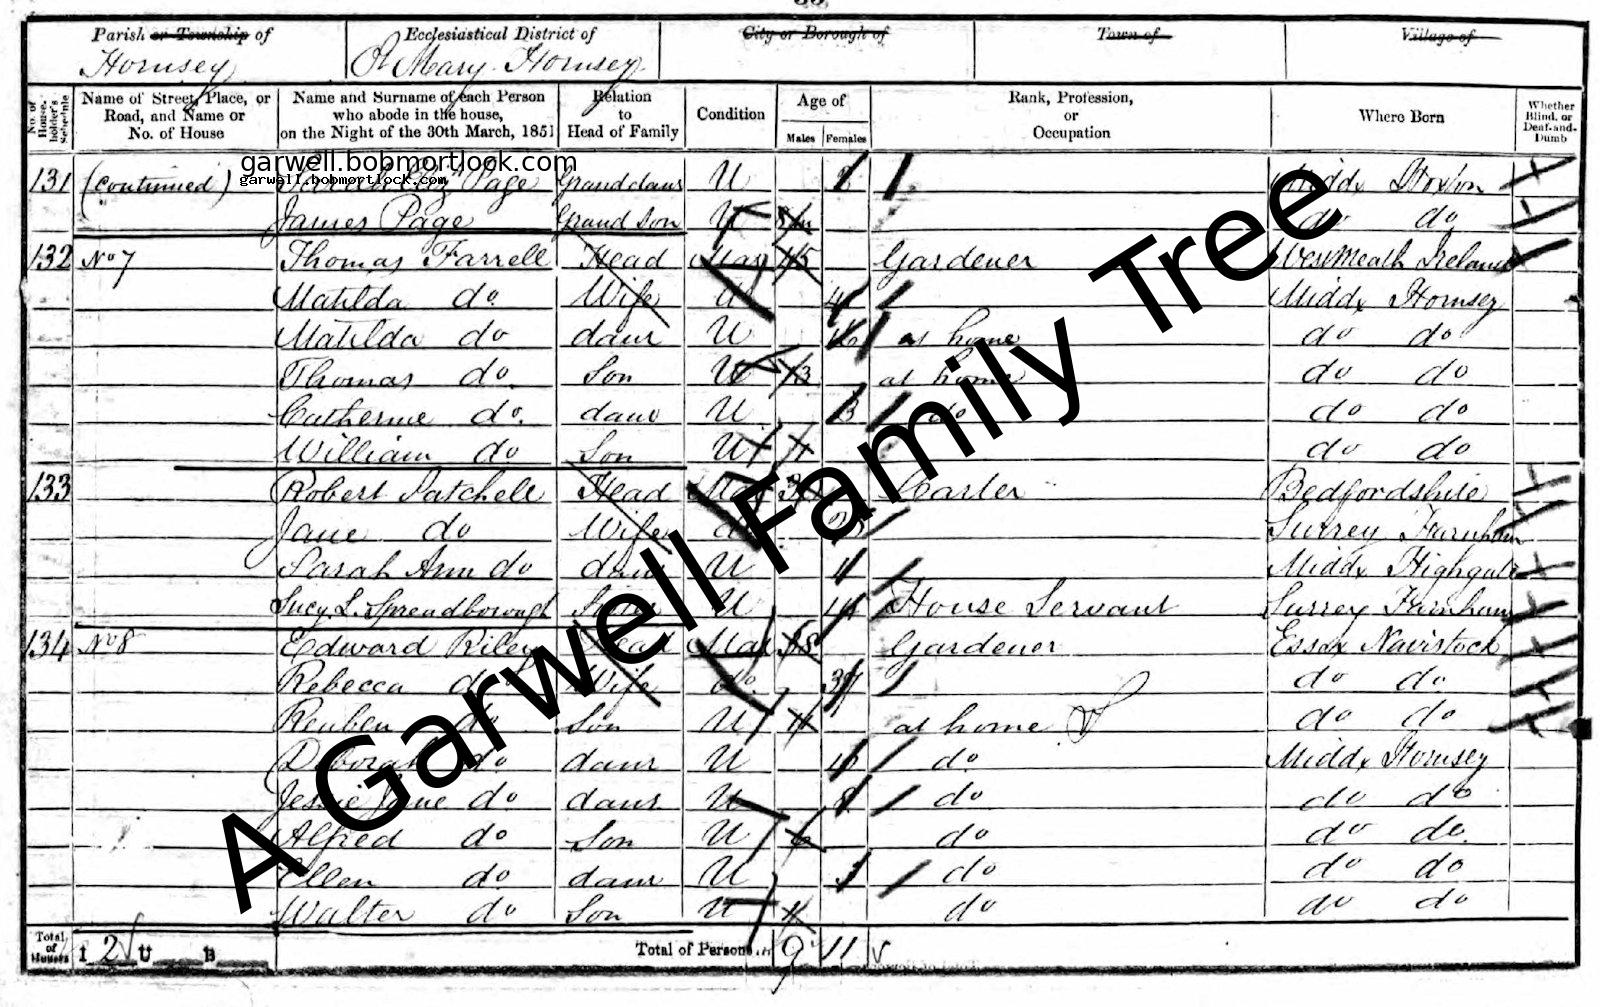 Parish or Township of Ecclesiastical District of City or Borough of Town of Village of
Hornsey St Mary Hornsey
No. of House-holder's Schedule Name of Street, Place, or Road, and Name or No. of House Name and Surname of each Person who abode in the house, on the Night of the 30th March, 1851 Relation to Head of Family Condition Age of Males Females Rank, Profession, or Occupation Where Born Whether Blind, or Deaf-and-Dumb
garwell.bobmortlook.com
garwell.bobmortlock.com
131 (Continued) Page Granddaur U Middx Hoxton
James Page Grand Son U do do
132 No 7 Thomas Farrell Head Mar 45 Gardener West Meath Ireland
Matilda do Wife do Middx Hornsey
Matilda do daur U 16 at home do do
Thomas do Son U 13 at home do do
Catherine do daur U do do do
William do Son U do do
133 Robert Satchell Head Mar Carter Bedfordshire
Jane do Wife do Surrey Farnham
Sarah Ann do daur U Middx Highgate
Lucy L. Spreadborough U 14 House Servant Surrey Farnham
134 No 8 Edward Riley Head Mar 38 Gardener Essex Navistock
Rebecca do Wife do 37 do do
Reuben do Son U 11 at home do do
Deborah do daur U do Middx Hornsey
Jessie Jane do daur U 8 do do do
Alfred do Son U 6 do do do
Ellen do daur U 3 do do do
Walter do Son U 1 do do do
Total of Houses I 2 U B Total of Persons 9 11
A Garwell Family Tree